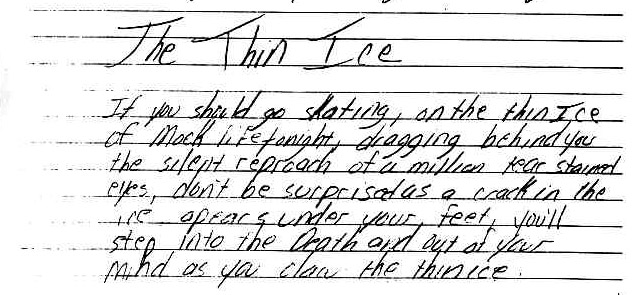 The Thin Ice
If you should go skating, on the thin Ice
of Mock lifetonight, dragging behind you
the silent reproach of a million tear stained
eyes, don't be surprised as a crack in the
ice apears under your feet, you'll
step into the Death and out of your
mind as you claw the thin ice.